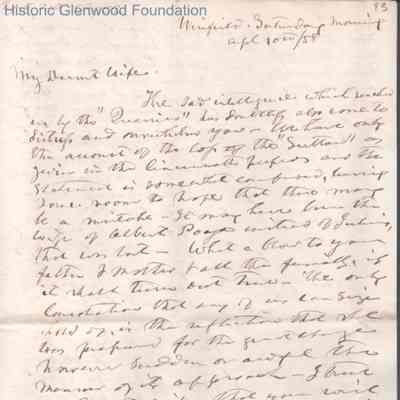 Historic Glenwood Foundation
93
Saturday Morning
Apl 10th/58
My Dearest Wife.
The sad intelligence which reached
us by the "Quaries" has doubtless also come to
distress and overwhelm you - We have only
the account of the loss of the "Sultan" as
given in the Cincinnati papers and the
statement is somewhat confused, leaving
some room to hope that there may
be a mistake - It may have been the
wife of Albert Poage instead of
that was lost - What a blow to your
father & Mother & all the family, if
it shall turn out true - The only
Consolation that any of us can seize
hold of, is the reflection that she
was prepared for the great change
however sudden or awful the
manner of its approach - I trust
that you will